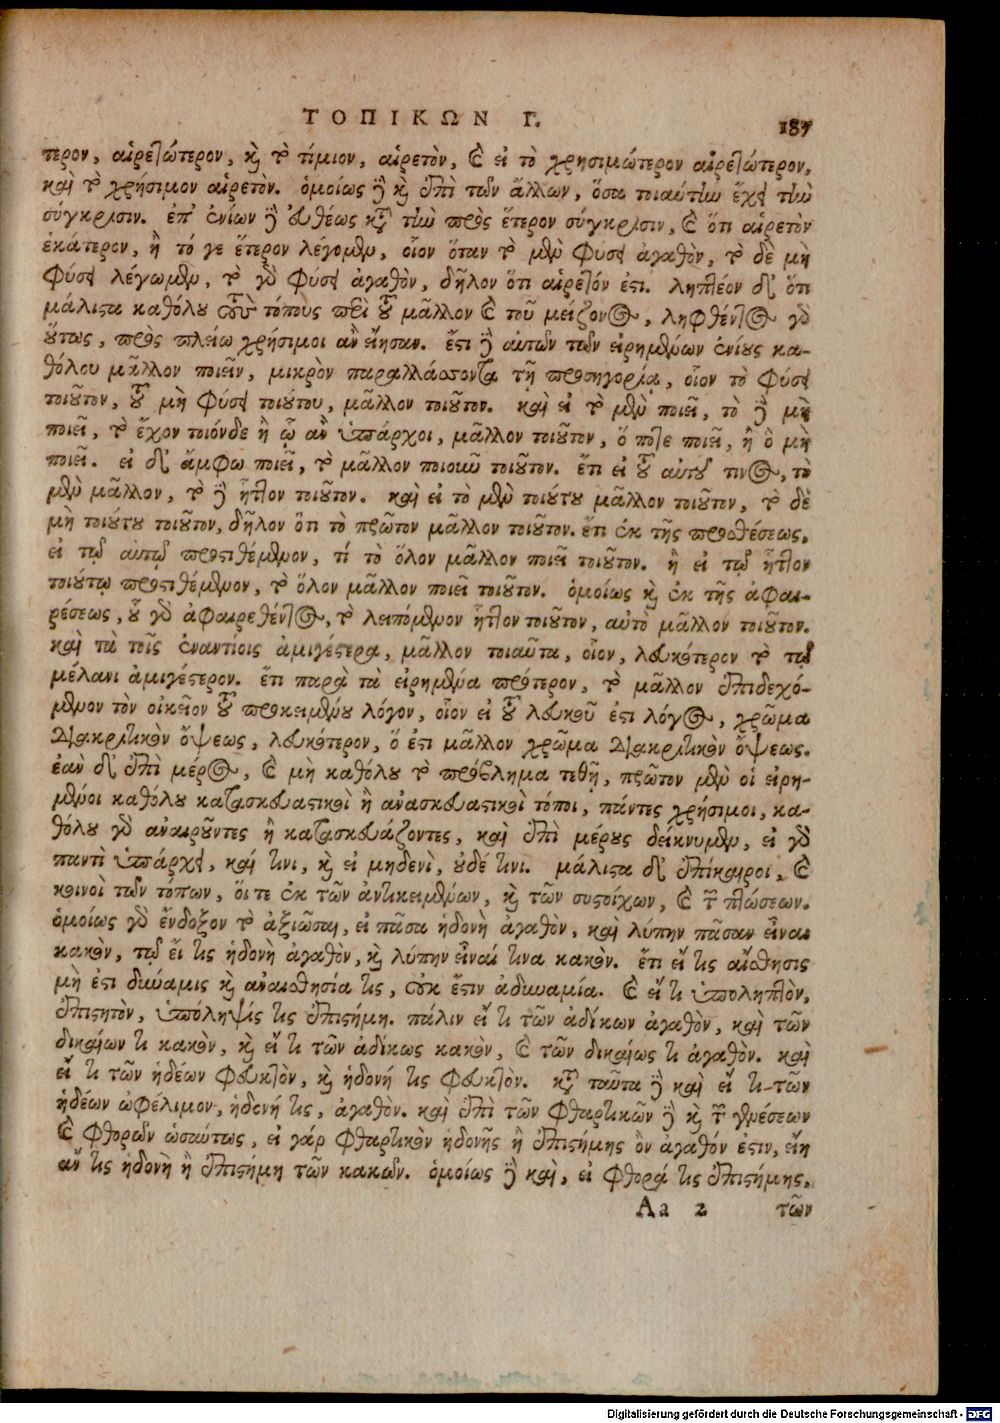 ΤΟΠΙΚΩΝ Γ. 187
τερον, αἱρετώτερον, καὶ τὸ τίμιον, αἱρετὸν, καὶ εἰ τὸ χρησιμώτερον αἱρετώτερον,
καὶ τὸ χρήσιμον αἱρετὸν. ὁμοίως δὲ καὶ ἐπὶ τῶν ἄλλων, ὅσα τοιαύτην ἔχει τὴν
σύγκρισιν. ἐπ' ἐνίων δὲ εὐθέως κατὰ τὴν πρὸς ἕτερον σύγκρισιν, καὶ ὅτι αἱρετὸν
ἑκάτερον, ἢ τό γε ἕτερον λέγομεν, οἷον ὅταν τὸ μὲν φύσει ἀγαθὸν, τὸ δὲ μὴ
φύσει λέγωμεν, τὸ γὰρ φύσει ἀγαθὸν, δῆλον ὅτι αἱρετόν ἐστι. ληπτέον δ' ὅτι
μάλιστα καθόλου τοὺς τόπους περὶ τοῦ μᾶλλον καὶ τοῦ μείζονος, ληφθέντος γὰρ
οὕτως, πρὸς πλείω χρήσιμοι ἂν εἴησαν. ἔστι δὲ αὐτῶν τῶν εἰρημένων ἐνίους κα-
θόλου μᾶλλον ποιεῖν, μικρὸν παραλλάσσοντα τῇ προσηγορίᾳ, οἷον τὸ φύσει
τοιοῦτον, τοῦ μὴ φύσει τοιούτου, μᾶλλον τοιοῦτον. καὶ εἰ τὸ μὲν ποιεῖ, τὸ δὲ μὴ
ποιεῖ, τὸ ἔχον τοιόνδε ἢ ᾧ ἂν ὑπάρχοι, μᾶλλον τοιοῦτον, ὅ ποτε ποιεῖ, ἢ ὃ μὴ
ποιεῖ. εἰ δ' ἄμφω ποιεῖ, τὸ μᾶλλον ποιοιοῦν τοιοῦτον. ἔτι εἰ τοῦ αὐτοῦ τινος, τὸ
μὲν μᾶλλον, τὸ δὲ ἧττον τοιοῦτον. καὶ εἰ τὸ μὲν τοιούτου μᾶλλον τοιοῦτον, τὸ δὲ
μὴ τοιούτου τοιοῦτον, δῆλον ὅτι τὸ πρῶτον μᾶλλον τοιοῦτον. ἔτι ἐκ τῆς προσθέσεως,
εἰ τῷ αὐτῷ προστιθέμενον, τί τὸ ὅλον μᾶλλον ποιεῖ τοιοῦτον. ἢ εἰ τῷ ἧττον
τοιούτῳ προστιθέμενον, τὸ ὅλον μᾶλλον ποιεῖ τοιοῦτον. ὁμοίως καὶ ἐκ τῆς ἀφαι-
ρέσεως, οὗ γὰρ ἀφαιρεθέντος, τὸ λειπόμενον ἧττον τοιοῦτον, αὐτὸ μᾶλλον τοιοῦτον.
καὶ τὰ τοῖς ἐναντίοις ἀμιγέστερα, μᾶλλον τοιαῦτα, οἷον, λευκότερον τὸ τῷ
μέλανι ἀμιγέστερον. ἔτι παρὰ τὰ εἰρημένα πρότερον, τὸ μᾶλλον ἐπιδεχό-
μενον τὸν οἰκεῖον τοῦ προκειμένου λόγον, οἷον εἰ τοῦ λευκοῦ ἐστι λόγος, χρῶμα
διακριτικὸν ὄψεως, λευκότερον, ὅ ἐστι μᾶλλον χρῶμα διακριτικὸν ὄψεως.
ἐὰν δ' ἐπὶ μέρος, καὶ μὴ καθόλου τὸ πρόβλημα τεθῇ, πρῶτον μὲν οἱ εἰρη-
μένοι καθόλου κατασκευαστικοὶ ἢ ἀνασκευαστικοὶ τόποι, πάντες χρήσιμοι, κα-
θόλου γὰρ ἀναιροῦντες ἢ κατασκευάζοντες, καὶ ἐπὶ μέρους δείκνυμεν, εἰ γὰρ
παντὶ ὑπάρχει, καί τινι, καὶ εἰ μηδενὶ, οὐδέ τινι. μάλιστα δ' ἐπίκαιροι, καὶ
κοινοὶ τῶν τόπων, οἵ τε ἐκ τῶν ἀντικειμένων, καὶ τῶν συστοίχων, καὶ τῶν πτώσεων.
ὁμοίως γὰρ ἔνδοξον τὸ ἀξιῶσαι, εἰ πᾶσα ἡδονὴ ἀγαθὸν, καὶ λύπην πᾶσαν εἶναι
κακὸν, τῷ εἴ τις ἡδονὴ ἀγαθὸν, καὶ λύπην εἶναί τινα κακὸν. ἔτι εἴ τις αἴσθησις
μὴ ἐστι δύναμις καὶ ἀναισθησία τις, οὐκ ἔστιν ἀδυναμία. καὶ εἴ τι ὑποληπτὸν,
ἐπιστητὸν, ὑπόληψίς τις ἐπιστήμη. πάλιν εἴ τι τῶν ἀδίκων ἀγαθὸν, καὶ τῶν
δικαίων τι κακὸν, καὶ εἴ τι τῶν ἀδίκως κακὸν, καὶ τῶν δικαίως τι ἀγαθὸν. καὶ
εἴ τι τῶν ἡδέων φευκτὸν, καὶ ἡδονή τις φευκτὸν. κατὰ ταῦτα δὲ καὶ εἴ τι τῶν
ἡδέων ὠφέλιμον, ἡδονή τις, ἀγαθὸν. καὶ ἐπὶ τῶν φθαρτικῶν δὲ καὶ τῶν γενέσεων
καὶ φθορῶν ὡσαύτως, εἰ γάρ φθαρτικὸν ἡδονῆς ἢ ἐπιστήμης ὂν ἀγαθόν ἐστιν, εἴη
ἄν τις ἡδονὴ ἢ ἐπιστήμη τῶν κακῶν. ὁμοίως δὲ καὶ, εἰ φθορά τις ἐπιστήμης,
Aa 2 τῶν
Digitalisierung gefördert durch die Deutsche Forschungsgemeinschaft - DFG